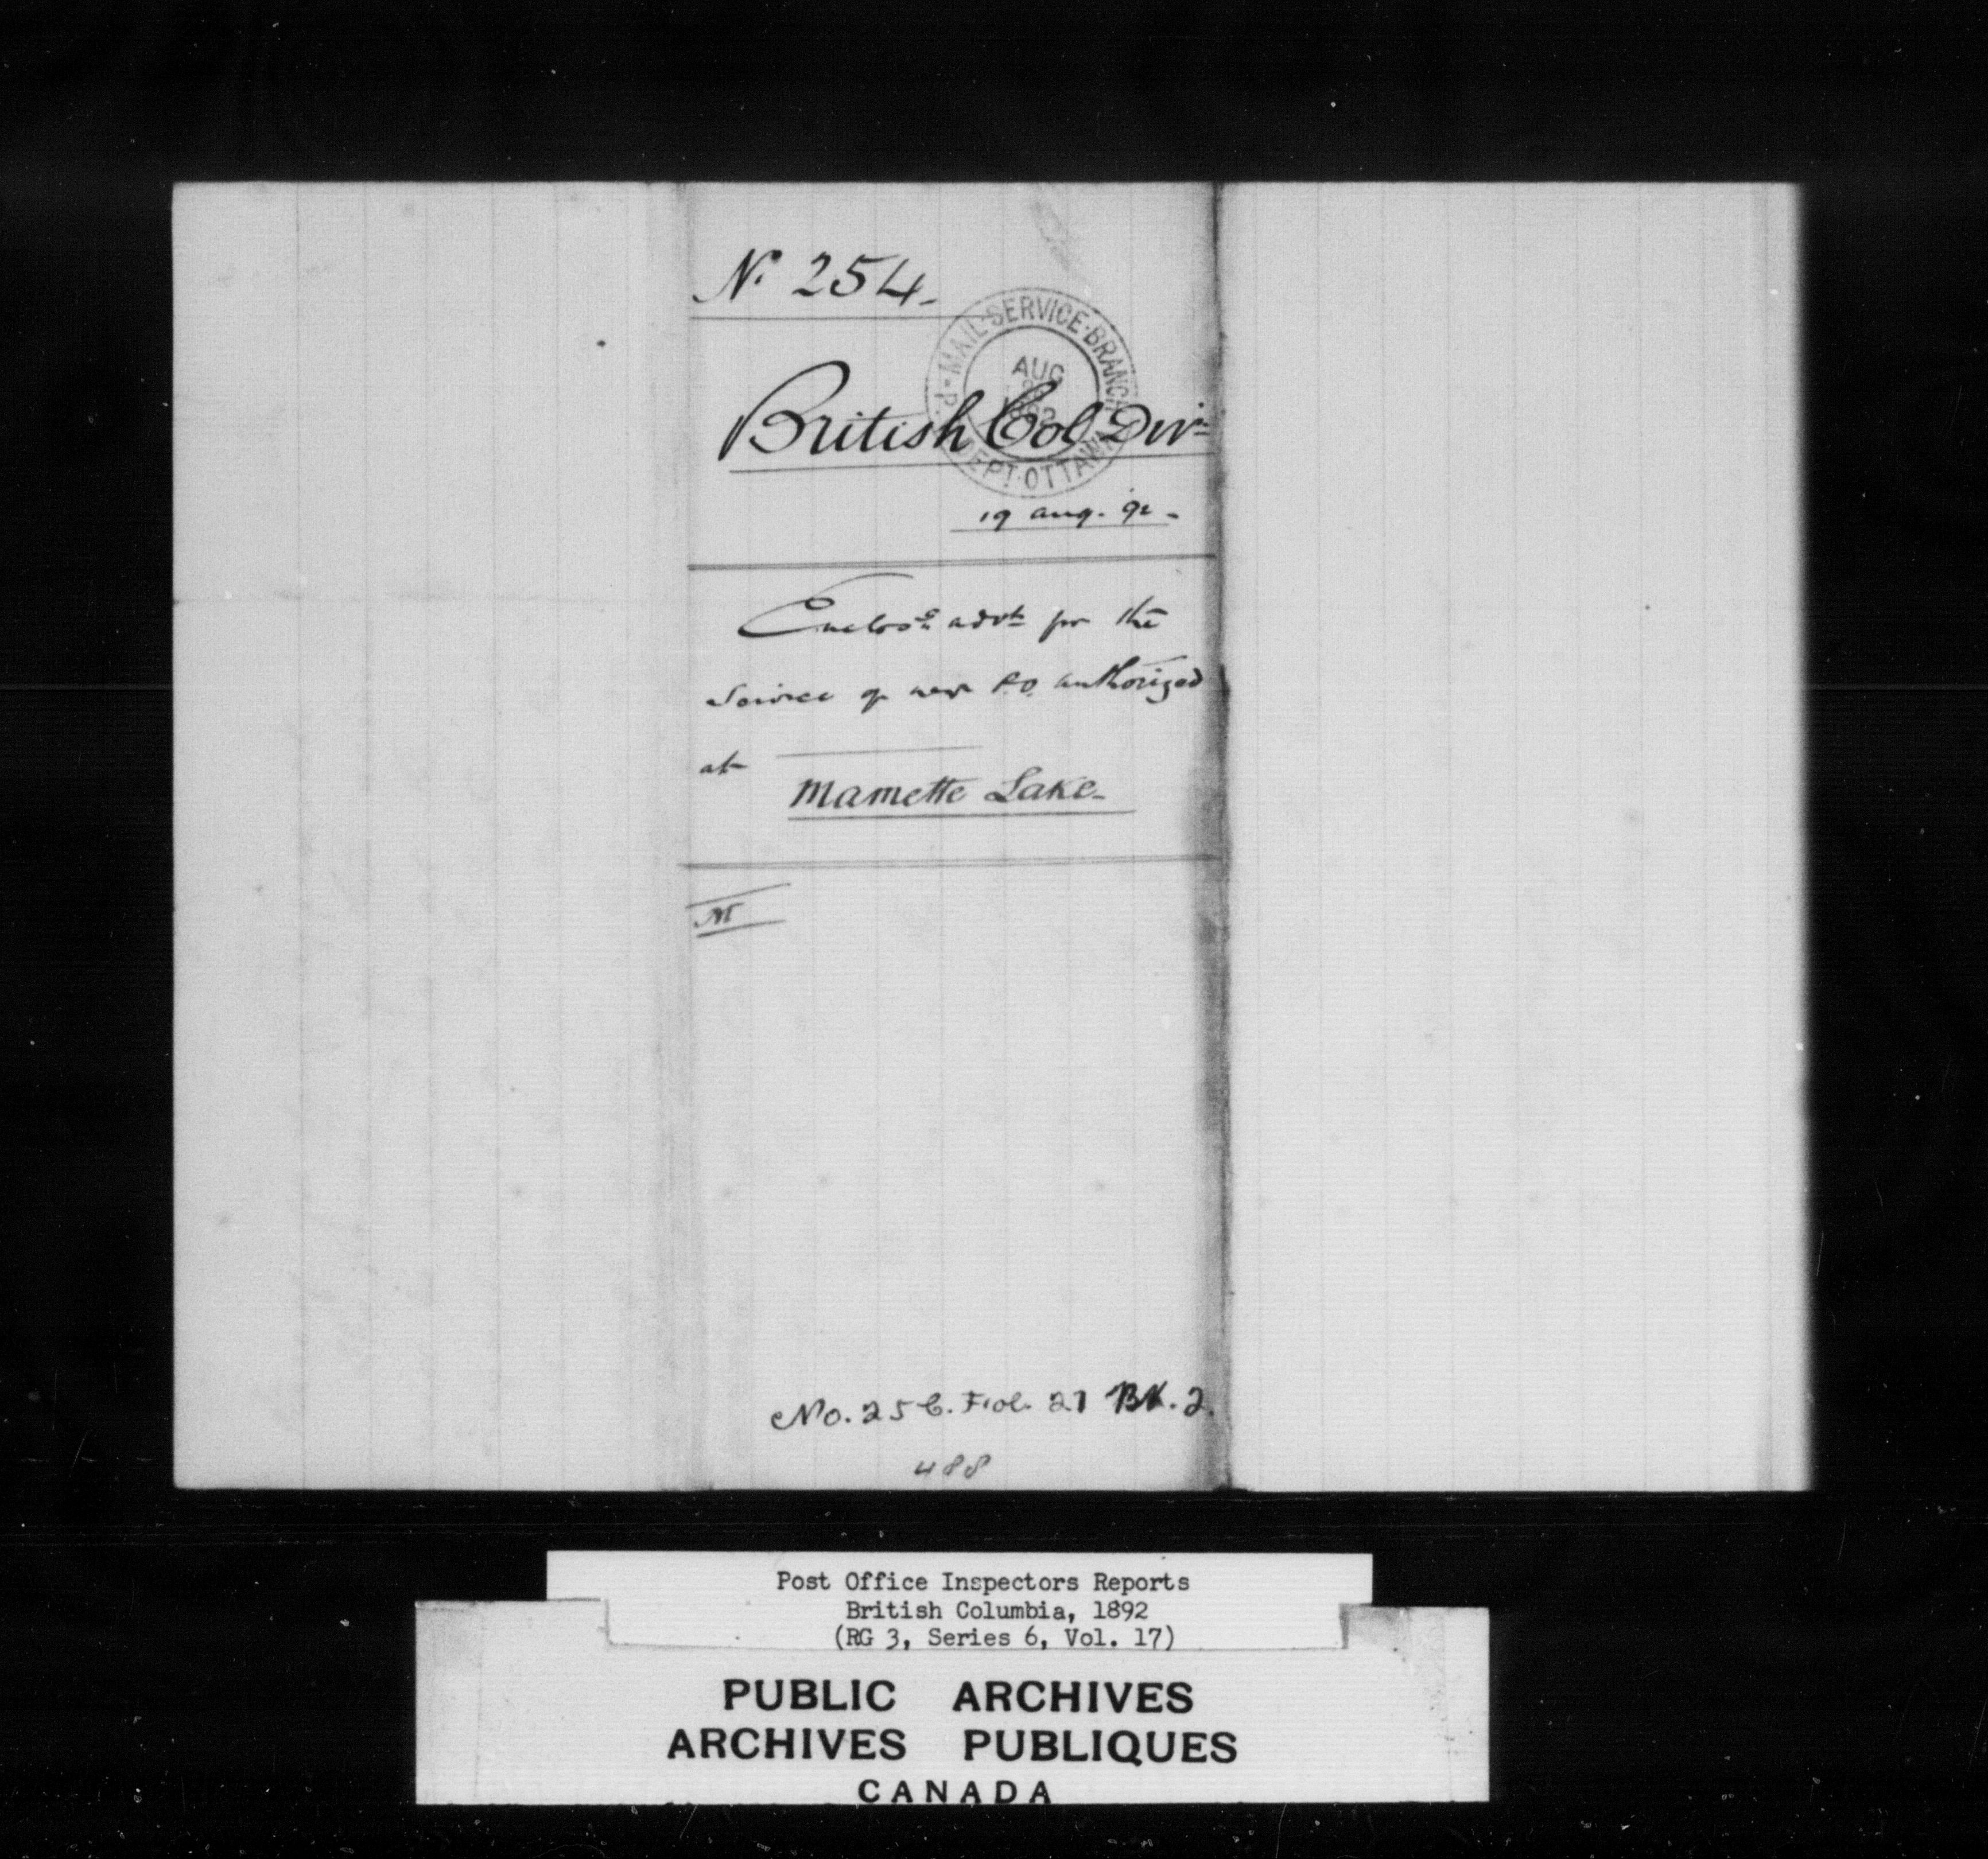 No. 254.
MAIL·SERVICE·BRANCH
P. DEPT·OTTAWA
AUG
1892
British Col Divn
19 Aug. 92.
Enclosg advt for the
Service of new P.O. authorized
at
Mamette Lake.
M
No. 256. Fiol. 21 BK. 2.
488
Post Office Inspectors Reports
British Columbia, 1892
(RG 3, Series 6, Vol. 17)
PUBLIC ARCHIVES
ARCHIVES PUBLIQUES
CANADA